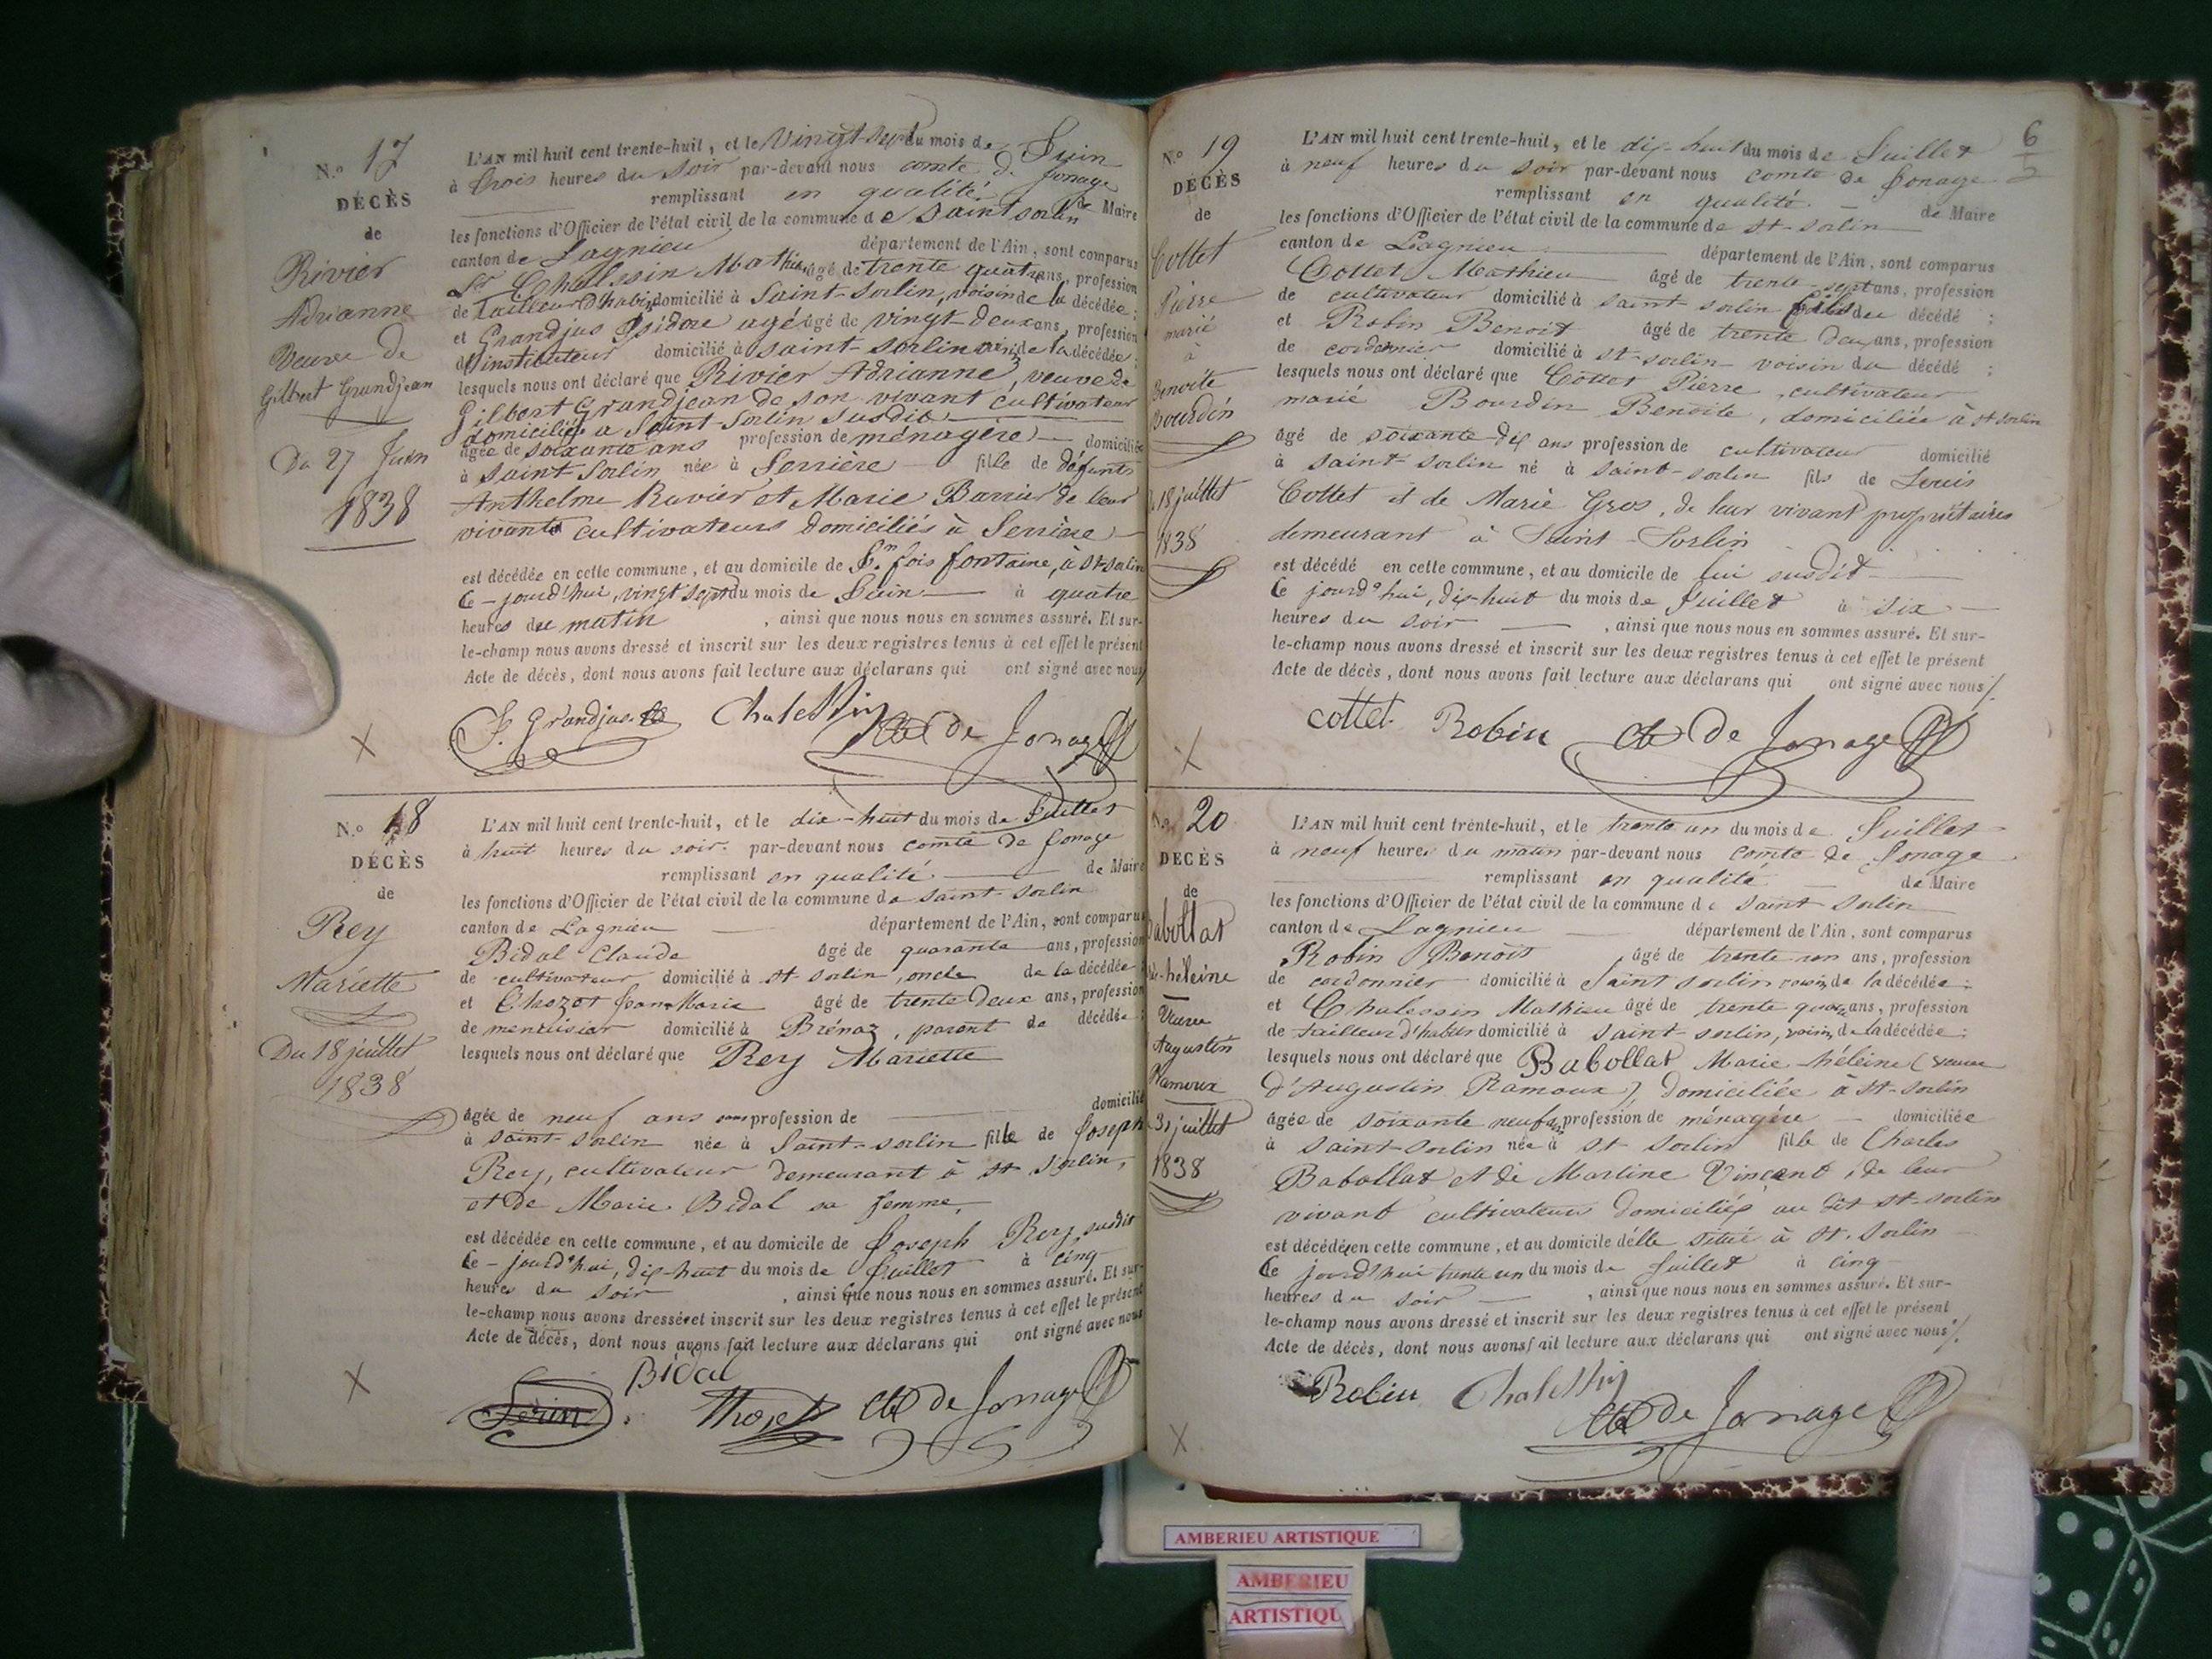 N.o 17
DÉCÈS
de
Rivier
Adrianne
Veuve de
Gilbert Grandjean
Du 27 Juin
1838
L'AN mil huit cent trente-huit, et le Vingt-sept du mois de Juin
à trois heures du soir par-devant nous comte de Jonage
remplissant en qualité de Maire
les fonctions d'Officier de l'état civil de la commune de Saint sorlin
canton de Lagnieu département de l'Ain, sont comparus
Sr Chalessin Mathieu âgé de trente quatre ans, profession
de Tailleur d'habits domicilié à Saint-Sorlin, voisin de la décédée;
et Grandjus Isidore agé âgé de vingt-deux ans, profession
d'instituteur domicilié à saint-sorlin voisin de la décédée;
lesquels nous ont déclaré que Rivier Adrianne, veuve de
Gilbert Grandjean de son vivant cultivateur
domiciliée a Saint-Sorlin susdit
âgée de soixante ans profession de ménagère domiciliée
à saint Sorlin née à Serrière fille de défunts
Anthelme Ravier et Marie Barrier de leur
vivants cultivateurs domiciliés à Serrière
est décédée en cette commune, et au domicile de fois fontaine, à st-sorlin
Ce-jourd'hui, vingt sept du mois de Juin à quatre
heures du matin, ainsi que nous nous en sommes assuré. Et sur-
le-champ nous avons dressé et inscrit sur les deux registres tenus à cet effet le présent
Acte de décès, dont nous avons fait lecture aux déclarans qui ont signé avec nous
J. Grandjus Chalessin Cte de Jonage
N.o 18
DÉCÈS
de
Rey
Mariette
Du 18 juillet
1838
L'AN mil huit cent trente-huit, et le dix-huit du mois de Juillet
à huit heures du soir par-devant nous comte de Jonage
remplissant en qualité de Maire
les fonctions d'Officier de l'état civil de la commune de saint-Sorlin
canton de Lagnieu département de l'Ain, sont comparus
Bidal Claude âgé de quarante ans, profession
de cultivateur domicilié à st sorlin, oncle de la décédée
et Chozot Jean-Marie âgé de trente-deux ans, profession
de menuisier domicilié à Brénaz, parent de décédée;
lesquels nous ont déclaré que Rey Mariette
âgée de neuf ans sans profession de domicilié
à saint-sorlin née à Saint-sorlin fille de Joseph
Rey, cultivateur demeurant à st Sorlin,
et de Marie Bidal sa femme,
est décédée en cette commune, et au domicile de Joseph Rey, susdit
Ce-jourd'hui, dix-huit du mois de Juillet à cinq
heures du soir, ainsi que nous nous en sommes assuré. Et sur-
le-champ nous avons dressé et inscrit sur les deux registres tenus à cet effet le présent
Acte de décès, dont nous avons fait lecture aux déclarans qui ont signé avec nous
Bidal
Cte de Jonage
6
N.o 19
DÉCÈS
de
Cottet
Pierre
marié
à
Benoite
Bourdin
18 juillet
1838
L'AN mil huit cent trente-huit, et le dix-huit du mois de Juillet
à neuf heures du soir par-devant nous comte de Jonage
remplissant en qualité de Maire
les fonctions d'Officier de l'état civil de la commune de st-sorlin
canton de Lagnieu département de l'Ain, sont comparus
Cottet Mathieu âgé de trente-sept ans, profession
de cultivateur domicilié à saint-sorlin fils du décédé;
et Robin Benoit âgé de trente deux ans, profession
de cordonnier domicilié à st-sorlin voisin du décédé;
lesquels nous ont déclaré que Cottet Pierre, cultivateur
marié Bourdin Benoite, domiciliée à st sorlin
âgé de soixante-dix ans profession de cultivateur domicilié
à saint-sorlin né à saint-sorlin fils de Louis
Cottet et de Marie Gros, de leur vivant propriétaires
demeurant à Saint-Sorlin
est décédé en cette commune, et au domicile de lui susdit
Ce jourd'hui, dix-huit du mois de Juillet à six
heures du soir, ainsi que nous nous en sommes assuré. Et sur-
le-champ nous avons dressé et inscrit sur les deux registres tenus à cet effet le présent
Acte de décès, dont nous avons fait lecture aux déclarans qui ont signé avec nous
cottet Robin Cte de Jonage
N.o 20
DÉCÈS
de
Babollat
héleine
Veuve
Augustin
Ramoux
31 juillet
1838
L'AN mil huit cent trente-huit, et le trente un du mois de Juillet
à neuf heures du matin par-devant nous comte de Jonage
remplissant en qualité de Maire
les fonctions d'Officier de l'état civil de la commune de saint sorlin
canton de Lagnieu département de l'Ain, sont comparus
Robin Benoit âgé de trente un ans, profession
de cordonnier domicilié à Saint sorlin voisin de la décédée;
et Chalessin Mathieu âgé de trente quatre ans, profession
de tailleur d'habits domicilié à saint-sorlin, voisin de la décédée;
lesquels nous ont déclaré que Babollat Marie-héleine (veuve
d'Augustin Ramoux) domiciliée à st-sorlin
âgée de soixante neuf ans profession de ménagère domiciliée
à saint-sorlin née à st sorlin fille de Charles
Babollat et de Martine Vincent, de leur
vivant cultivateurs domiciliés au dit st-sorlin
est décédée en cette commune, et au domicile d'elle situé à st. Sorlin
Ce jourd'hui trente un du mois de Juillet à cinq
heures du soir, ainsi que nous nous en sommes assuré. Et sur-
le-champ nous avons dressé et inscrit sur les deux registres tenus à cet effet le présent
Acte de décès, dont nous avons fait lecture aux déclarans qui ont signé avec nous
Robin Chalessin
Cte de Jonage
AMBERIEU ARTISTIQUE
AMBERIEU
ARTISTIQU